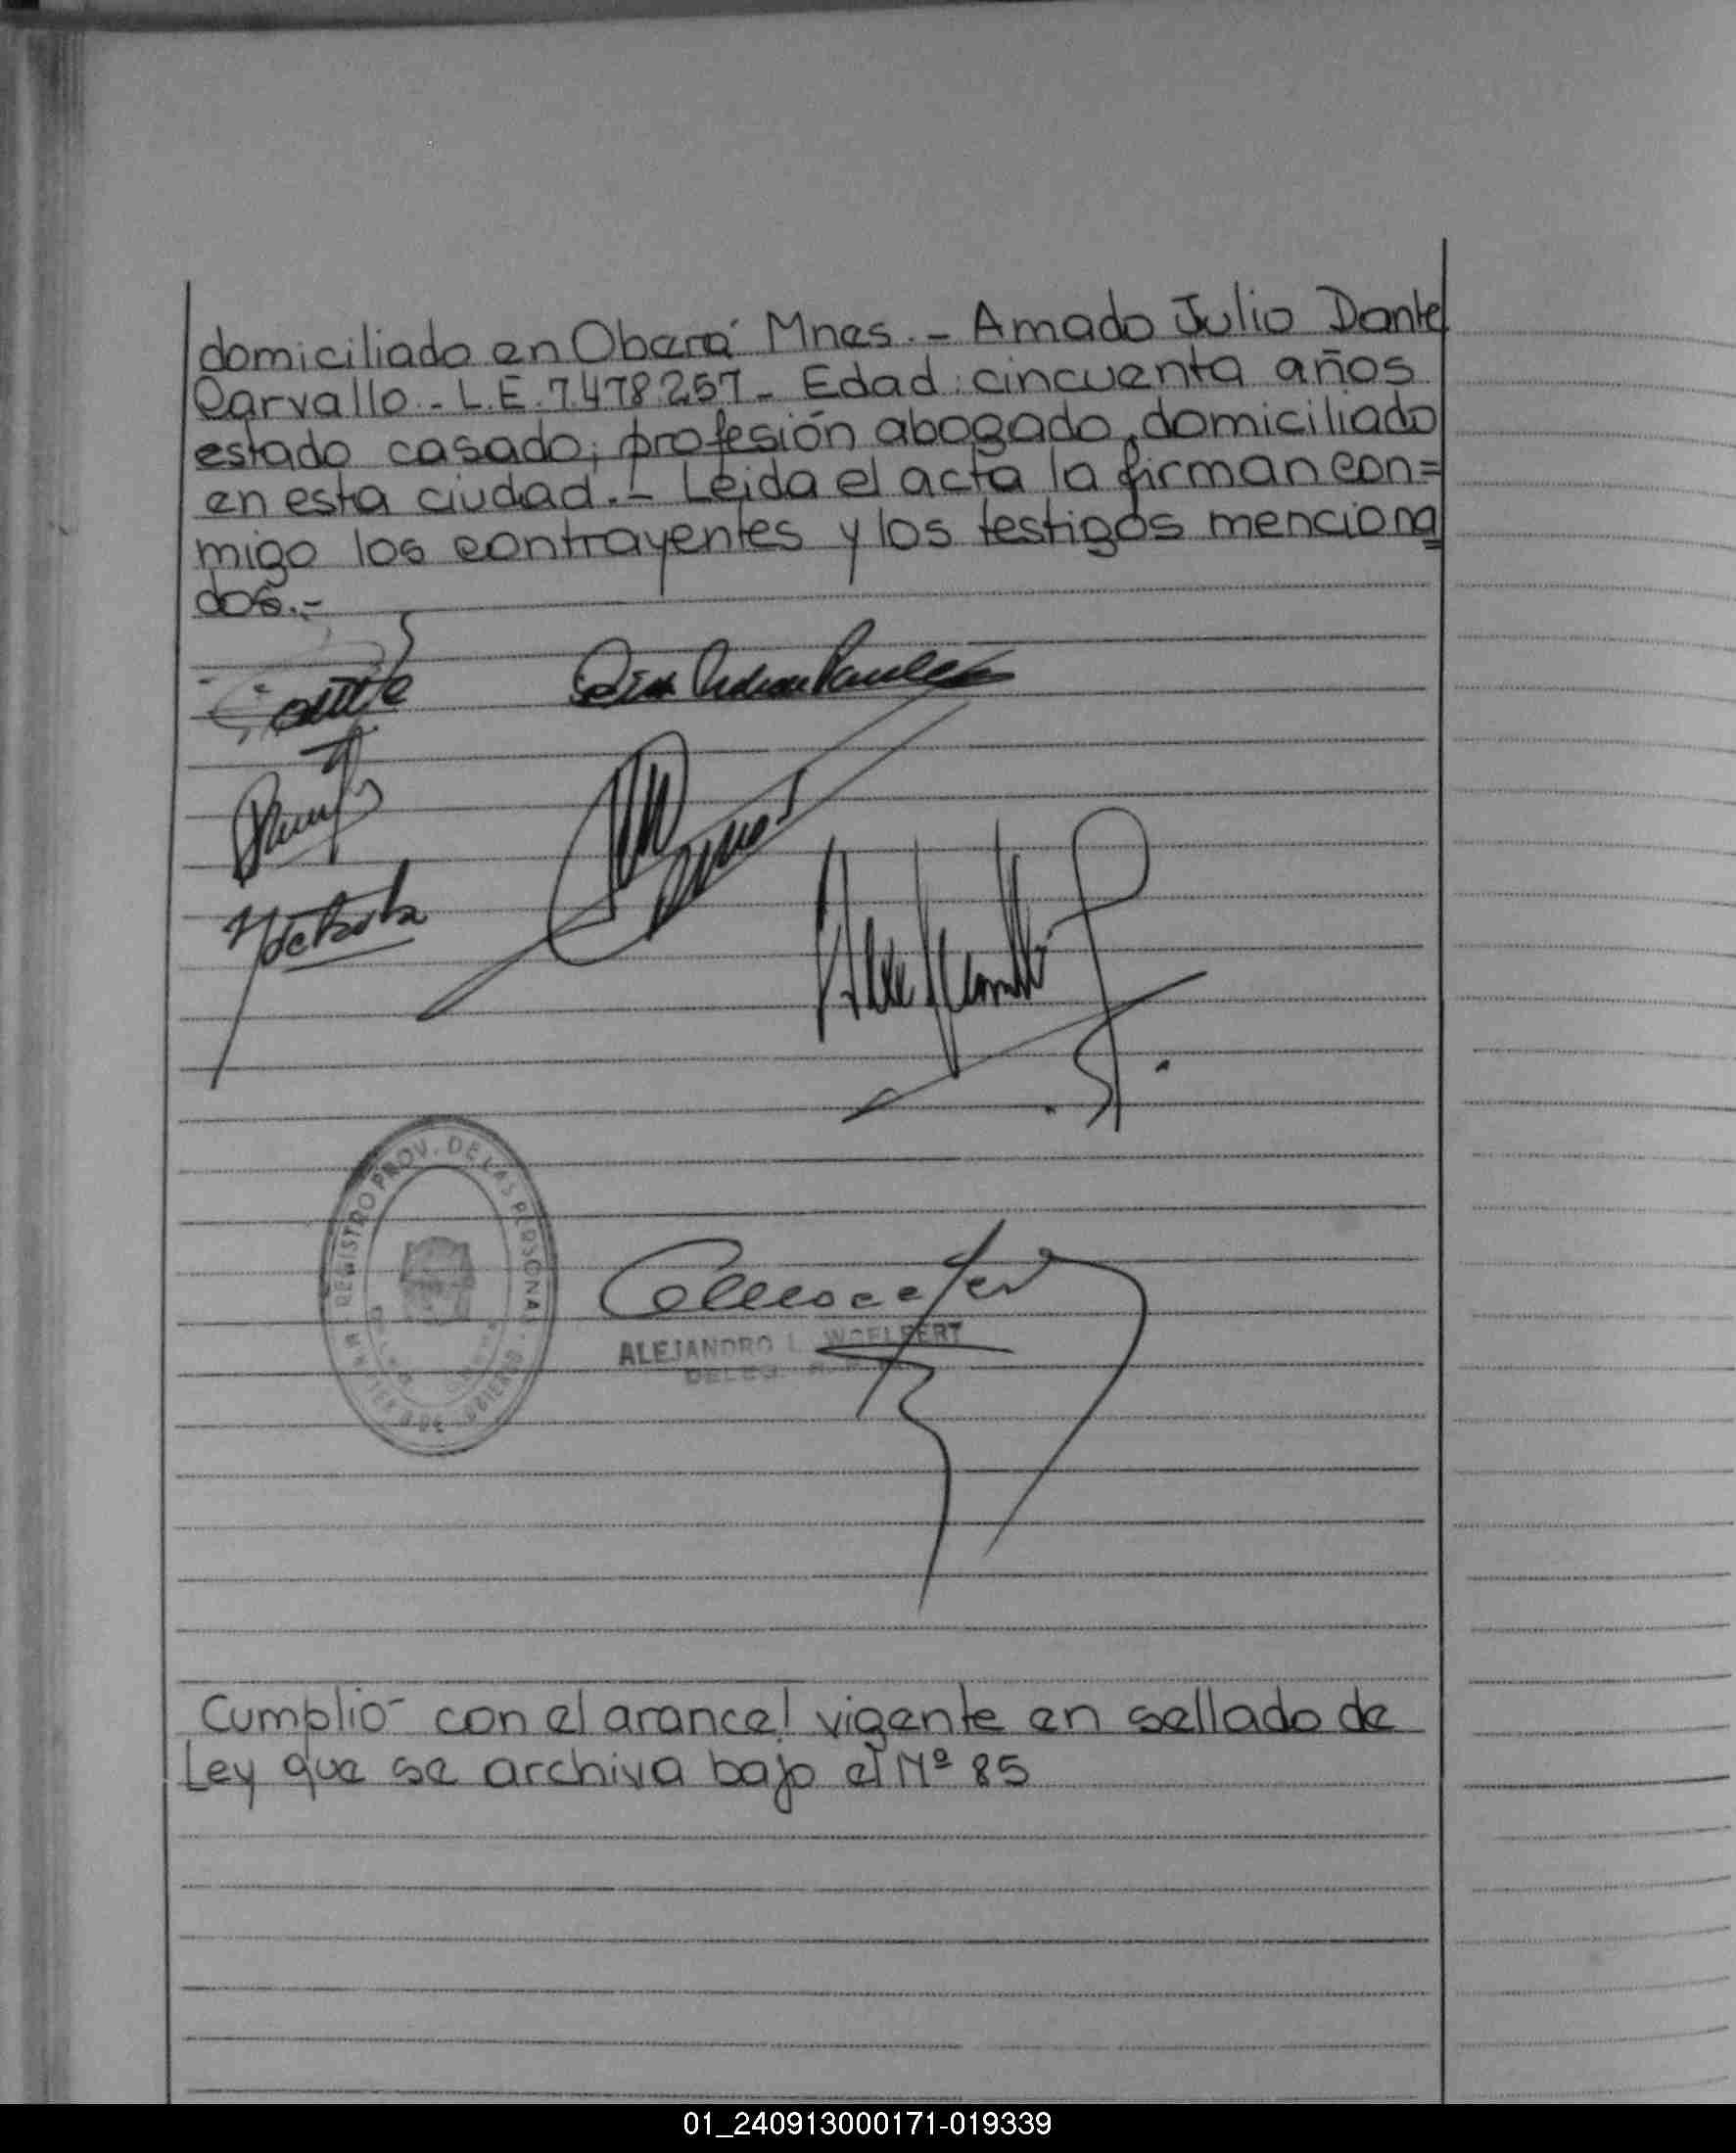 domiciliado en Oberá Mnes.- Amado Julio Dante
Carvallo.- L.E. 7.478.257- Edad: cincuenta años
estado casado; profesión abogado, domiciliado
en esta ciudad.- Leida el acta la firman con=
migo los contrayentes y los testigos menciona
dos.-
REGISTRO PROV. DE LAS PERSONAS
ALEJANDRO L. WOELFERT
DELEG.
Cumplió con el arancel vigente en sellado de
Ley que se archiva bajo el Nº 85
01_240913000171-019339